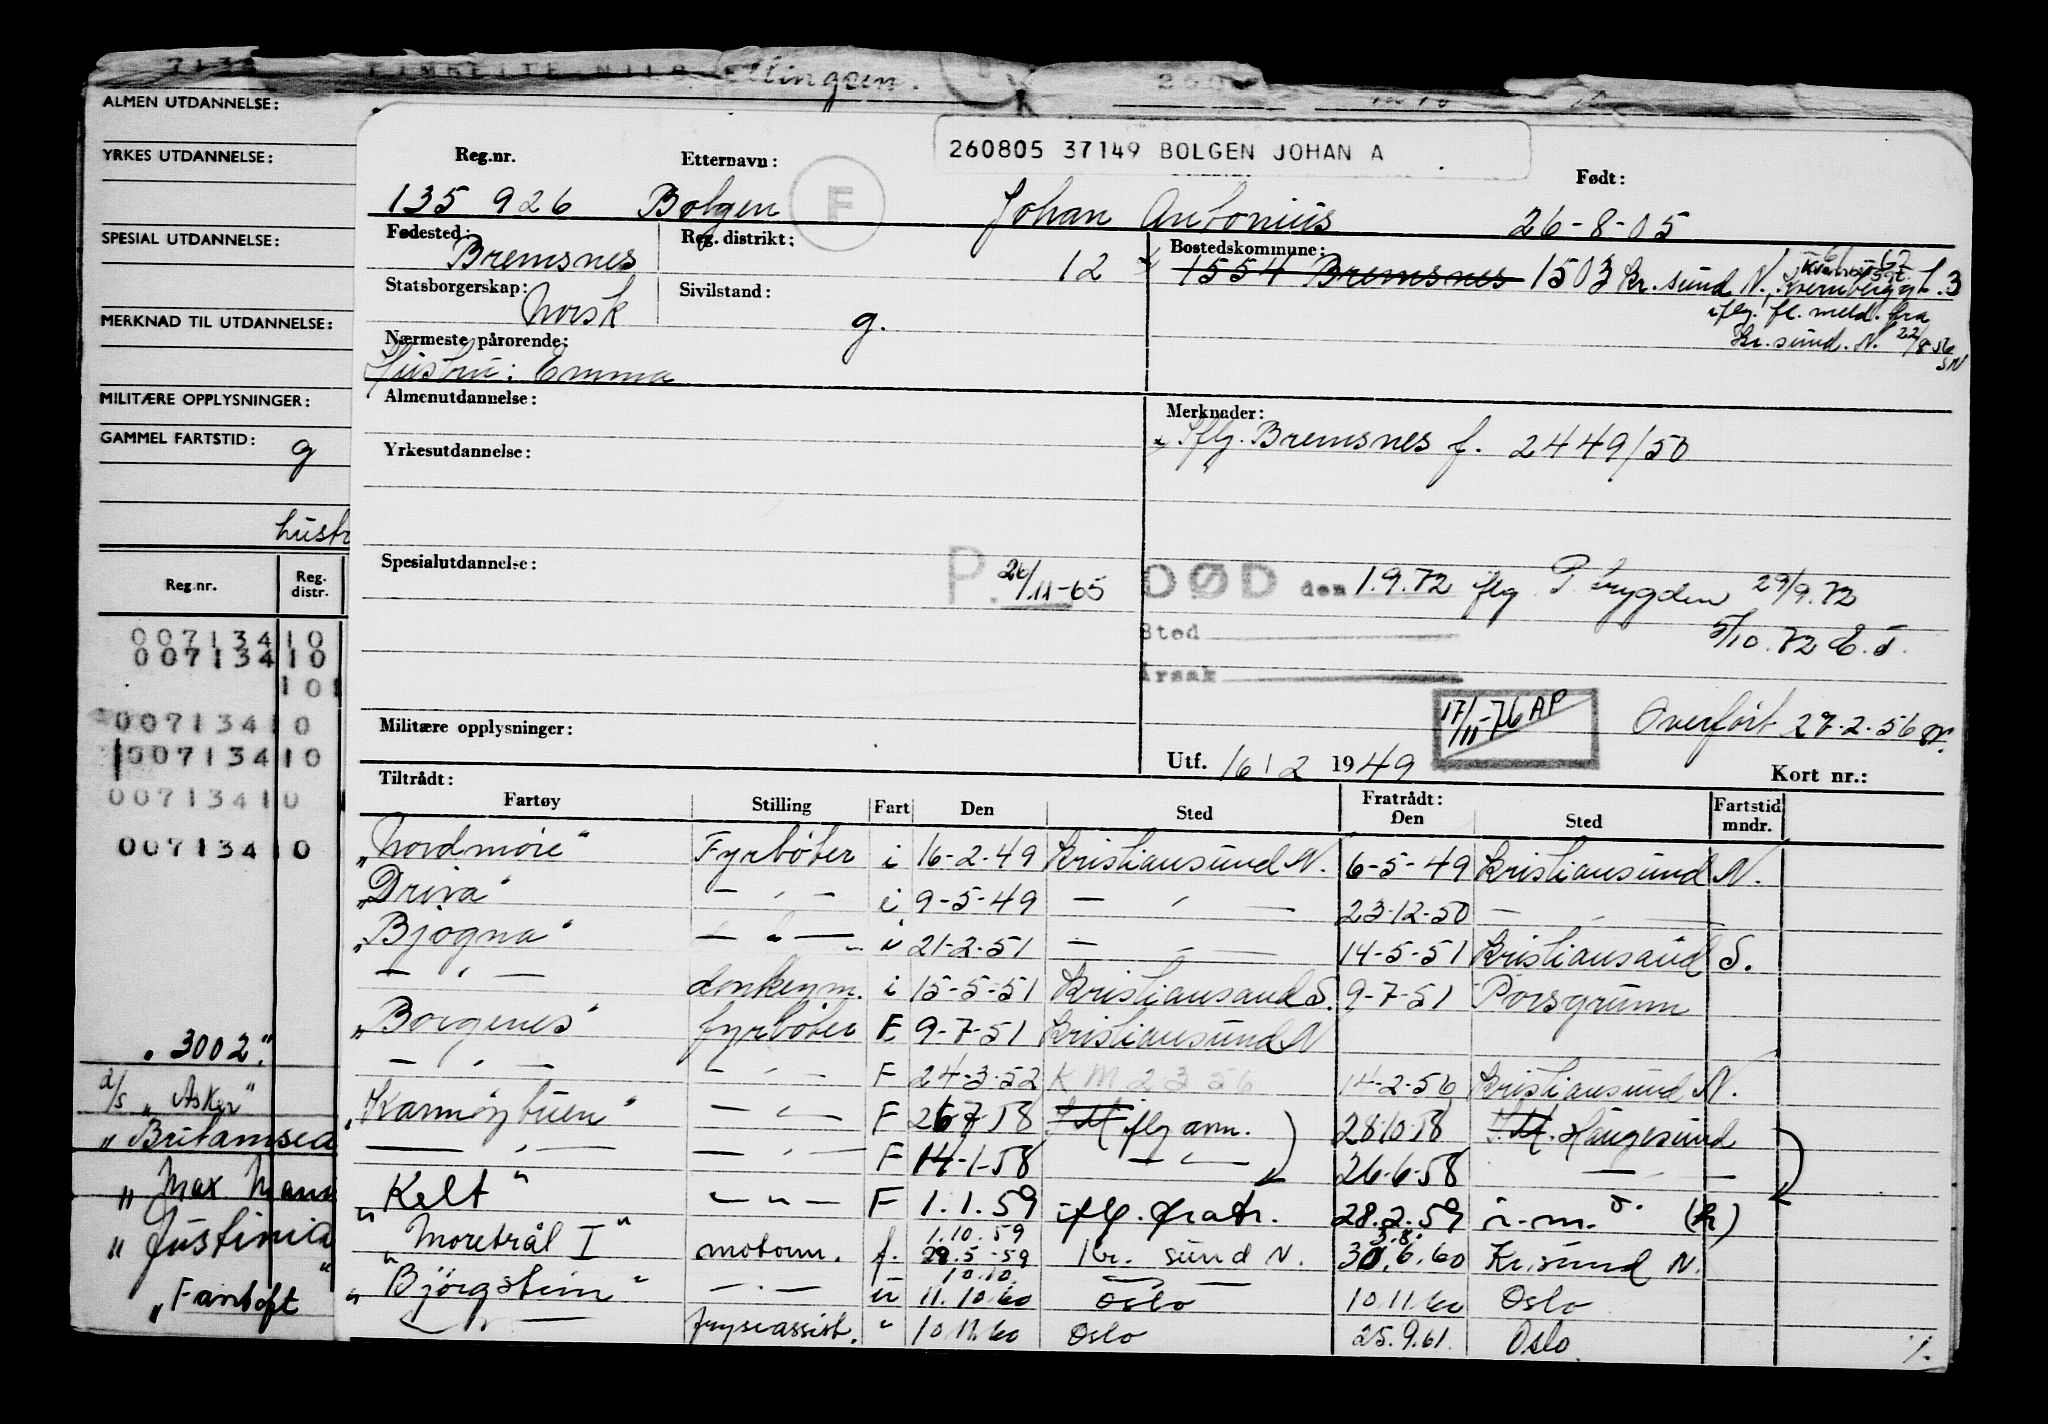 ellingsen.
ALMEN UTDANNELSE:
YRKES UTDANNELSE:
SPESIAL UTDANNELSE:
MERKNAD TIL UTDANNELSE:
MILITÆRE OPPLYSNINGER:
GAMMEL FARTSTID: g
hustr
Reg.nr. Reg. distr.
0071341 0
0071341 0
1 0
0071341 0
0071341 0
0071341 0
0071341 0
"3002"
d/s "Asker"
"Britamsea
"Max Manu
"Justinia
"Fantoft"
260805 37149 BOLGEN JOHAN A
Reg.nr. Etternavn: Født:
135 926 Bolgen F Johan Antonius 26-8-05
Fødested: Bremsnes Reg. distrikt: 12 Bostedskommune: 1554 Bremsnes 1503 Kr.sund N.,
iflg. fl. meld. fra
Kr.sund. N. 22/8-56 SN
Statsborgerskap: Norsk Sivilstand: g.
Nærmeste pårørende:
Hustru: Emma
Almenutdannelse: Merknader:
x Iflg. Bremsnes f. 2449/50
Yrkesutdannelse:
Spesialutdannelse: P. 26/11-65 DØD den 1.9.72 flg P.trygden 29/9.72
Sted 5/10.72 E.S.
Årsak
17/11-76 AP Overført 27.2.56
Militære opplysninger: Utf. 16/2 1949 Kort nr.:
Tiltrådt: Fratrådt:
Fartøy Stilling Fart Den Sted Den Sted Fartstid mndr.
"Nordmøre" Fyrbøter i 16-2-49 Kristiansund N. 6-5-49 Kristiansund N.
"Driva" — " — i 9-5-49 — " — 23-12-50 — " —
"Bjøgna" — " — i 21-2-51 — " — 14-5-51 Kristiansand S.
— " — donkeym. i 15-5-51 Kristiansand S. 9-7-51 Porsgrunn
"Borgenes" fyrbøter F 9-7-51 Kristiansund N
— " — — " — F 24-3-52 KM 2356 14-2-56 Kristiansund N.
"Karmøybuen" — " — F 26 7 58 I.M iflg ann. 28 10 58 I.M. Haugesund
— " — — " — F 14-1-58 — " — 26-6-58 — " —
"Kelt" — " — F 1.1.59 iflg. fratr. 28.2.59 i.m. (k)
1.10.59 3.8.
"Moretrål I" motorm. f. 29.5-59 Kr. sund N. 30.6.60 Kr.sund N.
10.10.
"Bjørgstein" — " — u 11.10.60 Oslo 10.11.60 Oslo
— " — fryseassist. " 10.11.60 Oslo 25.9.61. Oslo